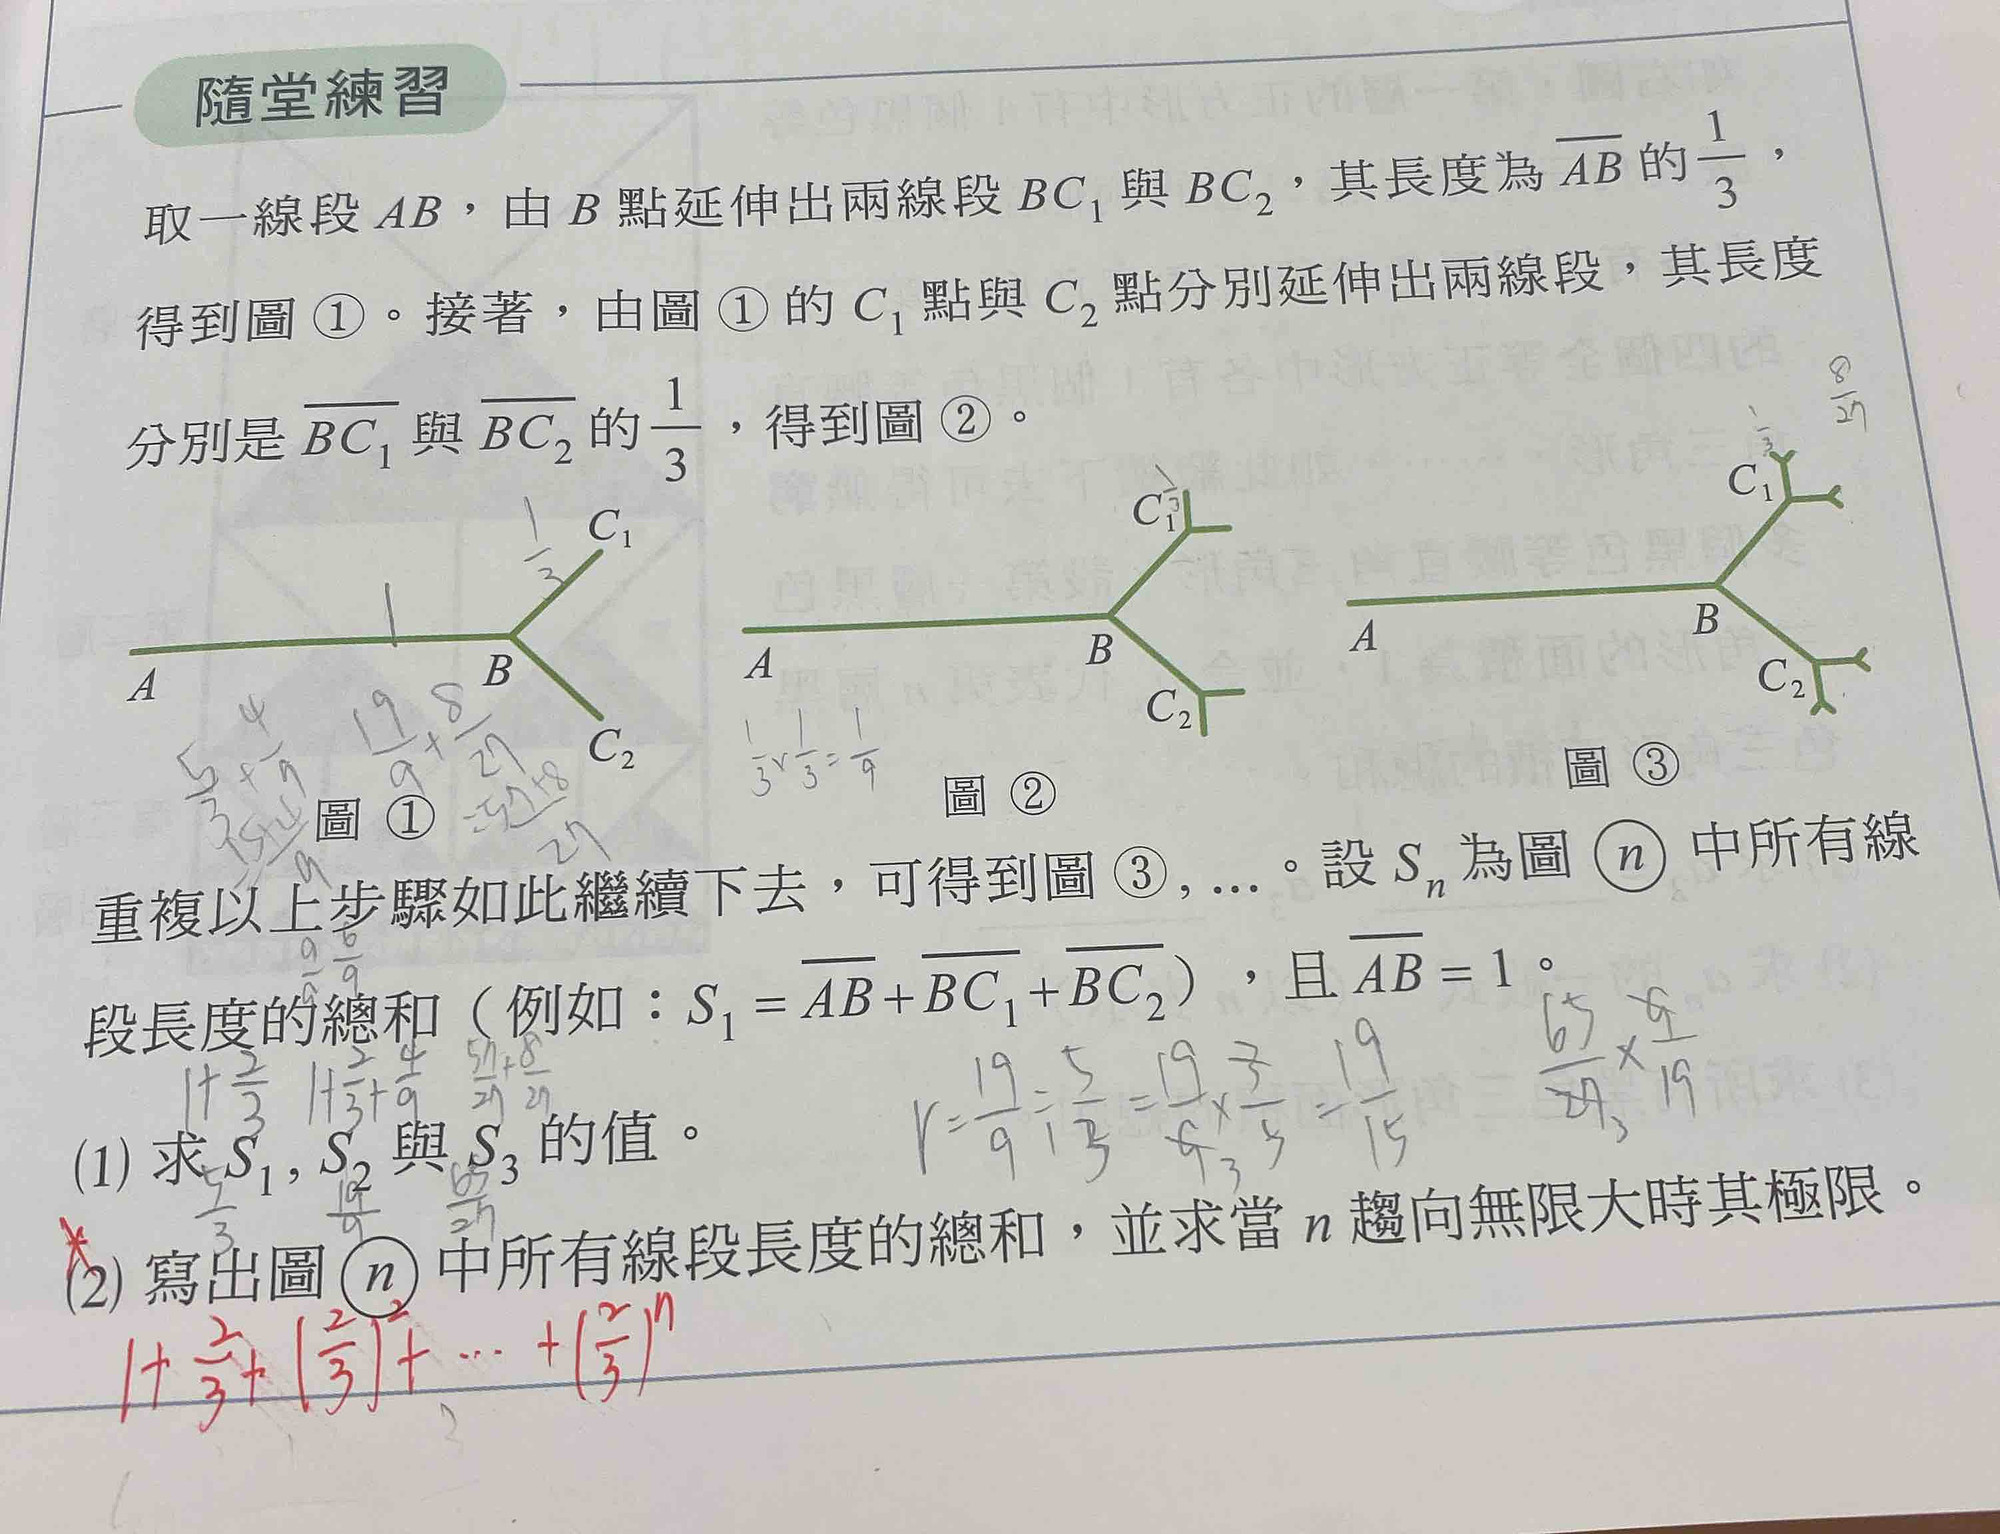 隨堂練習
取一線段 AB，由 B 點延伸出兩線段 BC₁ 與 BC₂，其長度為 \overline{AB} 的 1/3，
得到圖 ①。接著，由圖 ① 的 C₁ 點與 C₂ 點分別延伸出兩線段，其長度
分別是 \overline{BC₁} 與 \overline{BC₂} 的 1/3，得到圖 ②。
8/27
1/3
C₁
1/3
C₁
1/3
C₁
1
A
B
C₂
A
B
C₂
A
B
C₂
5/3 + 4/9
19/9 + 8/27
1/3 × 1/3 = 1/9
圖 ①
圖 ②
圖 ③
重複以上步驟如此繼續下去，可得到圖 ③, …。設 Sₙ 為圖 ⓝ 中所有線
段長度的總和（例如：S₁ = \overline{AB} + \overline{BC₁} + \overline{BC₂}），且 \overline{AB} = 1。
1+2/3
1+2/3+4/9
57/27+8/27
r = 19/9 ÷ 5/3 = 19/9 × 3/5 = 19/15
65/27 × 9/19
(1) 求 S₁, S₂ 與 S₃ 的值。
5/3
19/9
65/27
(2) 寫出圖 ⓝ 中所有線段長度的總和，並求當 n 趨向無限大時其極限。
1+2/3+(2/3)²+ … +(2/3)ⁿ